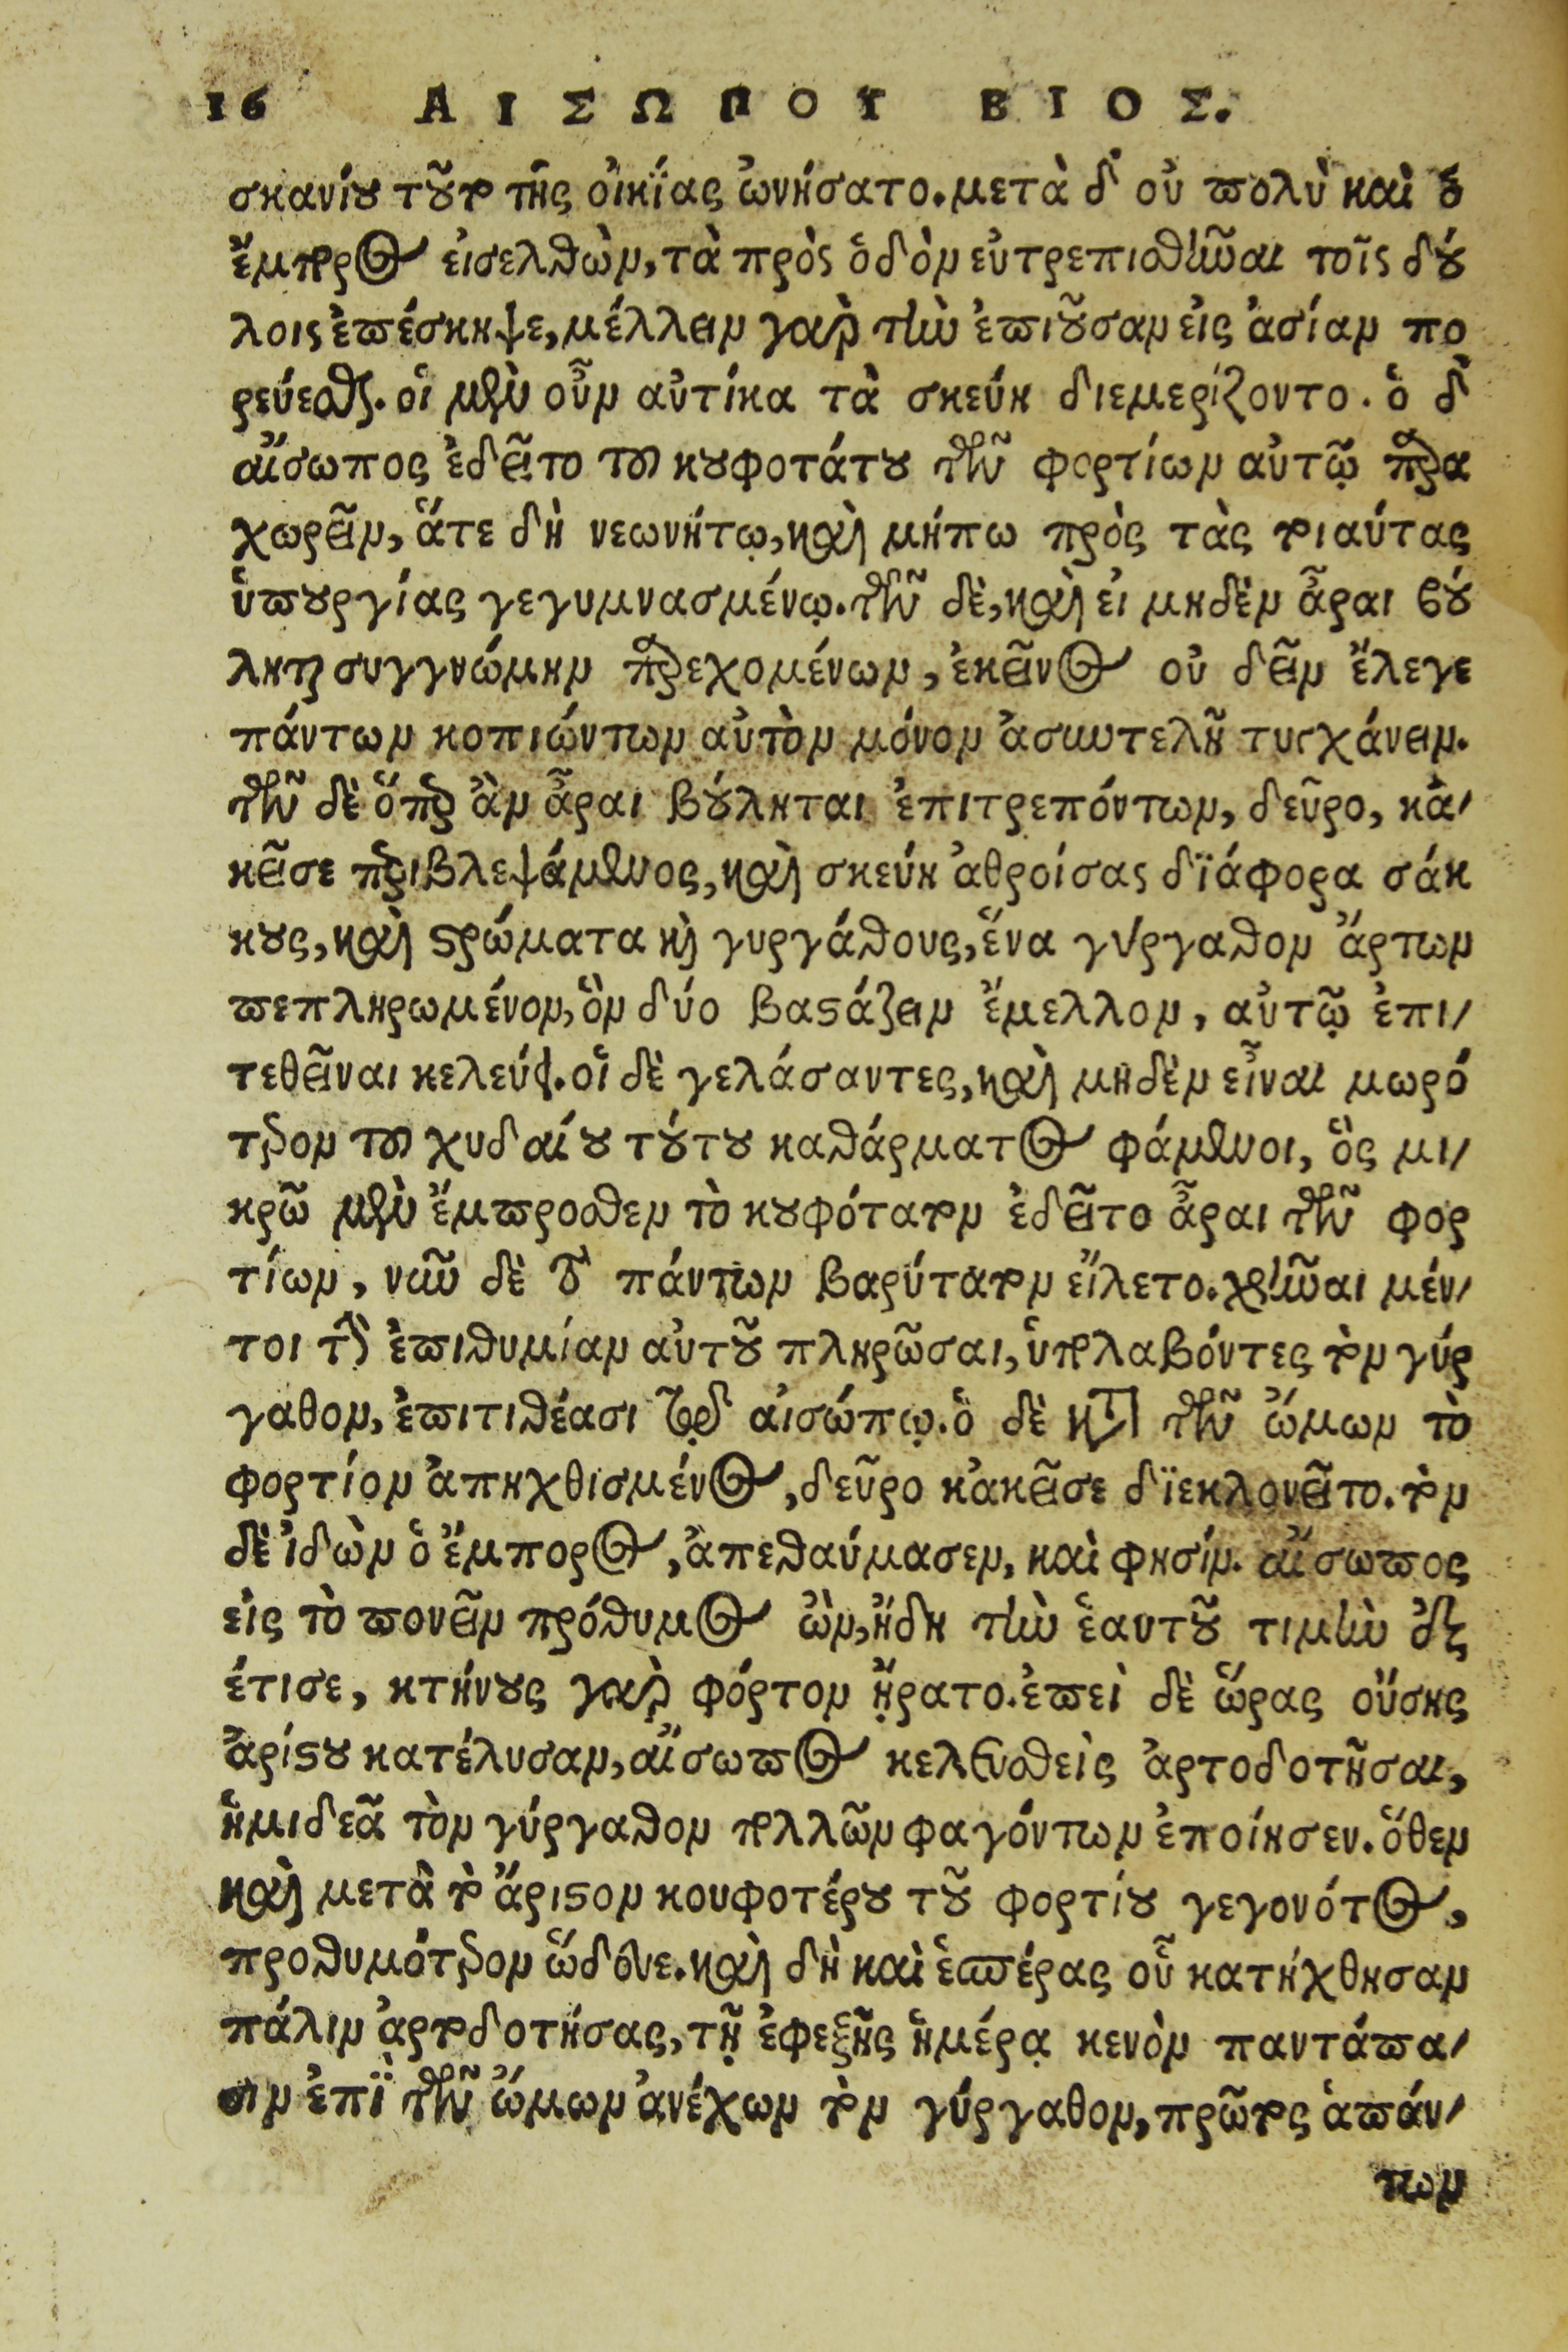 16 ΑΙΣΩΠΟΥ ΒΙΟΣ.
σκανίου τοῦτο τῆς οἰκΐας ὠνήσατο. μετὰ δ' οὐ πολὺ καὶ ὁ
ἔμπορος εἰσελθὼν, τὰ πρὸς ὁδὸν εὐτρεπισθῆναι τοῖς δού
λοις ἐπέσκηψε, μέλλειν γὰρ τὴν ἐπιοῦσαν εἰς ἀσίαν πο
ρεύεσθαι. οἱ μὲν οὖν αὐτίκα τὰ σκεύη διεμερίζοντο. ὁ δὲ
αἴσωπος ἐδεῖτο τοῦ κουφοτάτου τῶν φορτίων αὐτῷ παρα
χωρεῖν, ἅτε δὴ νεωνήτῳ, καὶ μήπω πρὸς τὰς τοιαύτας
ὑπουργίας γεγυμνασμένῳ. τῶν δὲ, καὶ εἰ μηδὲν ἆραι βού
ληται συγγνώμην παρεχομένων, ἐκεῖνος οὐ δεῖν ἔλεγε
πάντων κοπιώντων αὐτὸν μόνον ἀσυντελῆ τυγχάνειν.
τῶν δὲ ὅπερ ἂν ἆραι βούληται ἐπιτρεπόντων, δεῦρο, κἀ-
κεῖσε περιβλεψάμενος, καὶ σκεύη ἀθροίσας δϊάφορα σάκ
κους, καὶ στρώματα καὶ γυργάθους, ἕνα γύργαθον ἄρτων
πεπληρωμένον, ὃν δύο βαστάζειν ἔμελλον, αὐτῷ ἐπι-
τεθεῖναι κελεύει. οἳ δὲ γελάσαντες, καὶ μηδὲν εἶναι μωρό
τερον τοῦ χυδαίου τούτου καθάρματος φάμενοι, ὃς μι-
κρῶ μὲν ἔμπροσθεν τὸ κουφότατον ἐδεῖτο ἆραι τῶν φορ
τίων, νῦν δὲ τὸ πάντων βαρύτατον εἵλετο. χρῆναι μέν-
τοι τὴν ἐπιθυμίαν αὐτοῦ πληρῶσαι, ὑπολαβόντες τὸν γύρ
γαθον, ἐπιτιθέασι τῷ αἰσώπῳ. ὁ δὲ κατὰ τῶν ὤμων τὸ
φορτίον ἀπηχθισμένος, δεῦρο κἀκεῖσε δϊεκλονεῖτο. τὸν
δὲ ἰδὼν ὁ ἔμπορος, ἀπεθαύμασεν, καὶ φησίν. αἴσωπος
εἰς τὸ πονεῖν πρόθυμος ὢν, ἤδη τὴν ἑαυτοῦ τιμὴν ἐξ
έτισε, κτήνους γὰρ φόρτον ᾔρατο. ἐπεὶ δὲ ὥρας οὔσης
ἀρίστου κατέλυσαν, αἴσωπος κελευσθεὶς ἀρτοδοτῆσαι,
ἡμιδεᾶ τὸν γύργαθον πολλῶν φαγόντων ἐποίησεν. ὅθεν
καὶ μετὰ τὸ ἄριστον κουφοτέρου τοῦ φορτίου γεγονότος,
προθυμότερον ὥδευε. καὶ δὴ καὶ ἑσπέρας οὗ κατήχθησαν
πάλιν ἀρτοδοτήσας, τῇ ἐφεξῆς ἡμέρᾳ κενὸν παντάπα-
σιν ἐπῒ τῶν ὤμων ἀνέχων τὸν γύργαθον, πρῶτος ἁπάν-
των